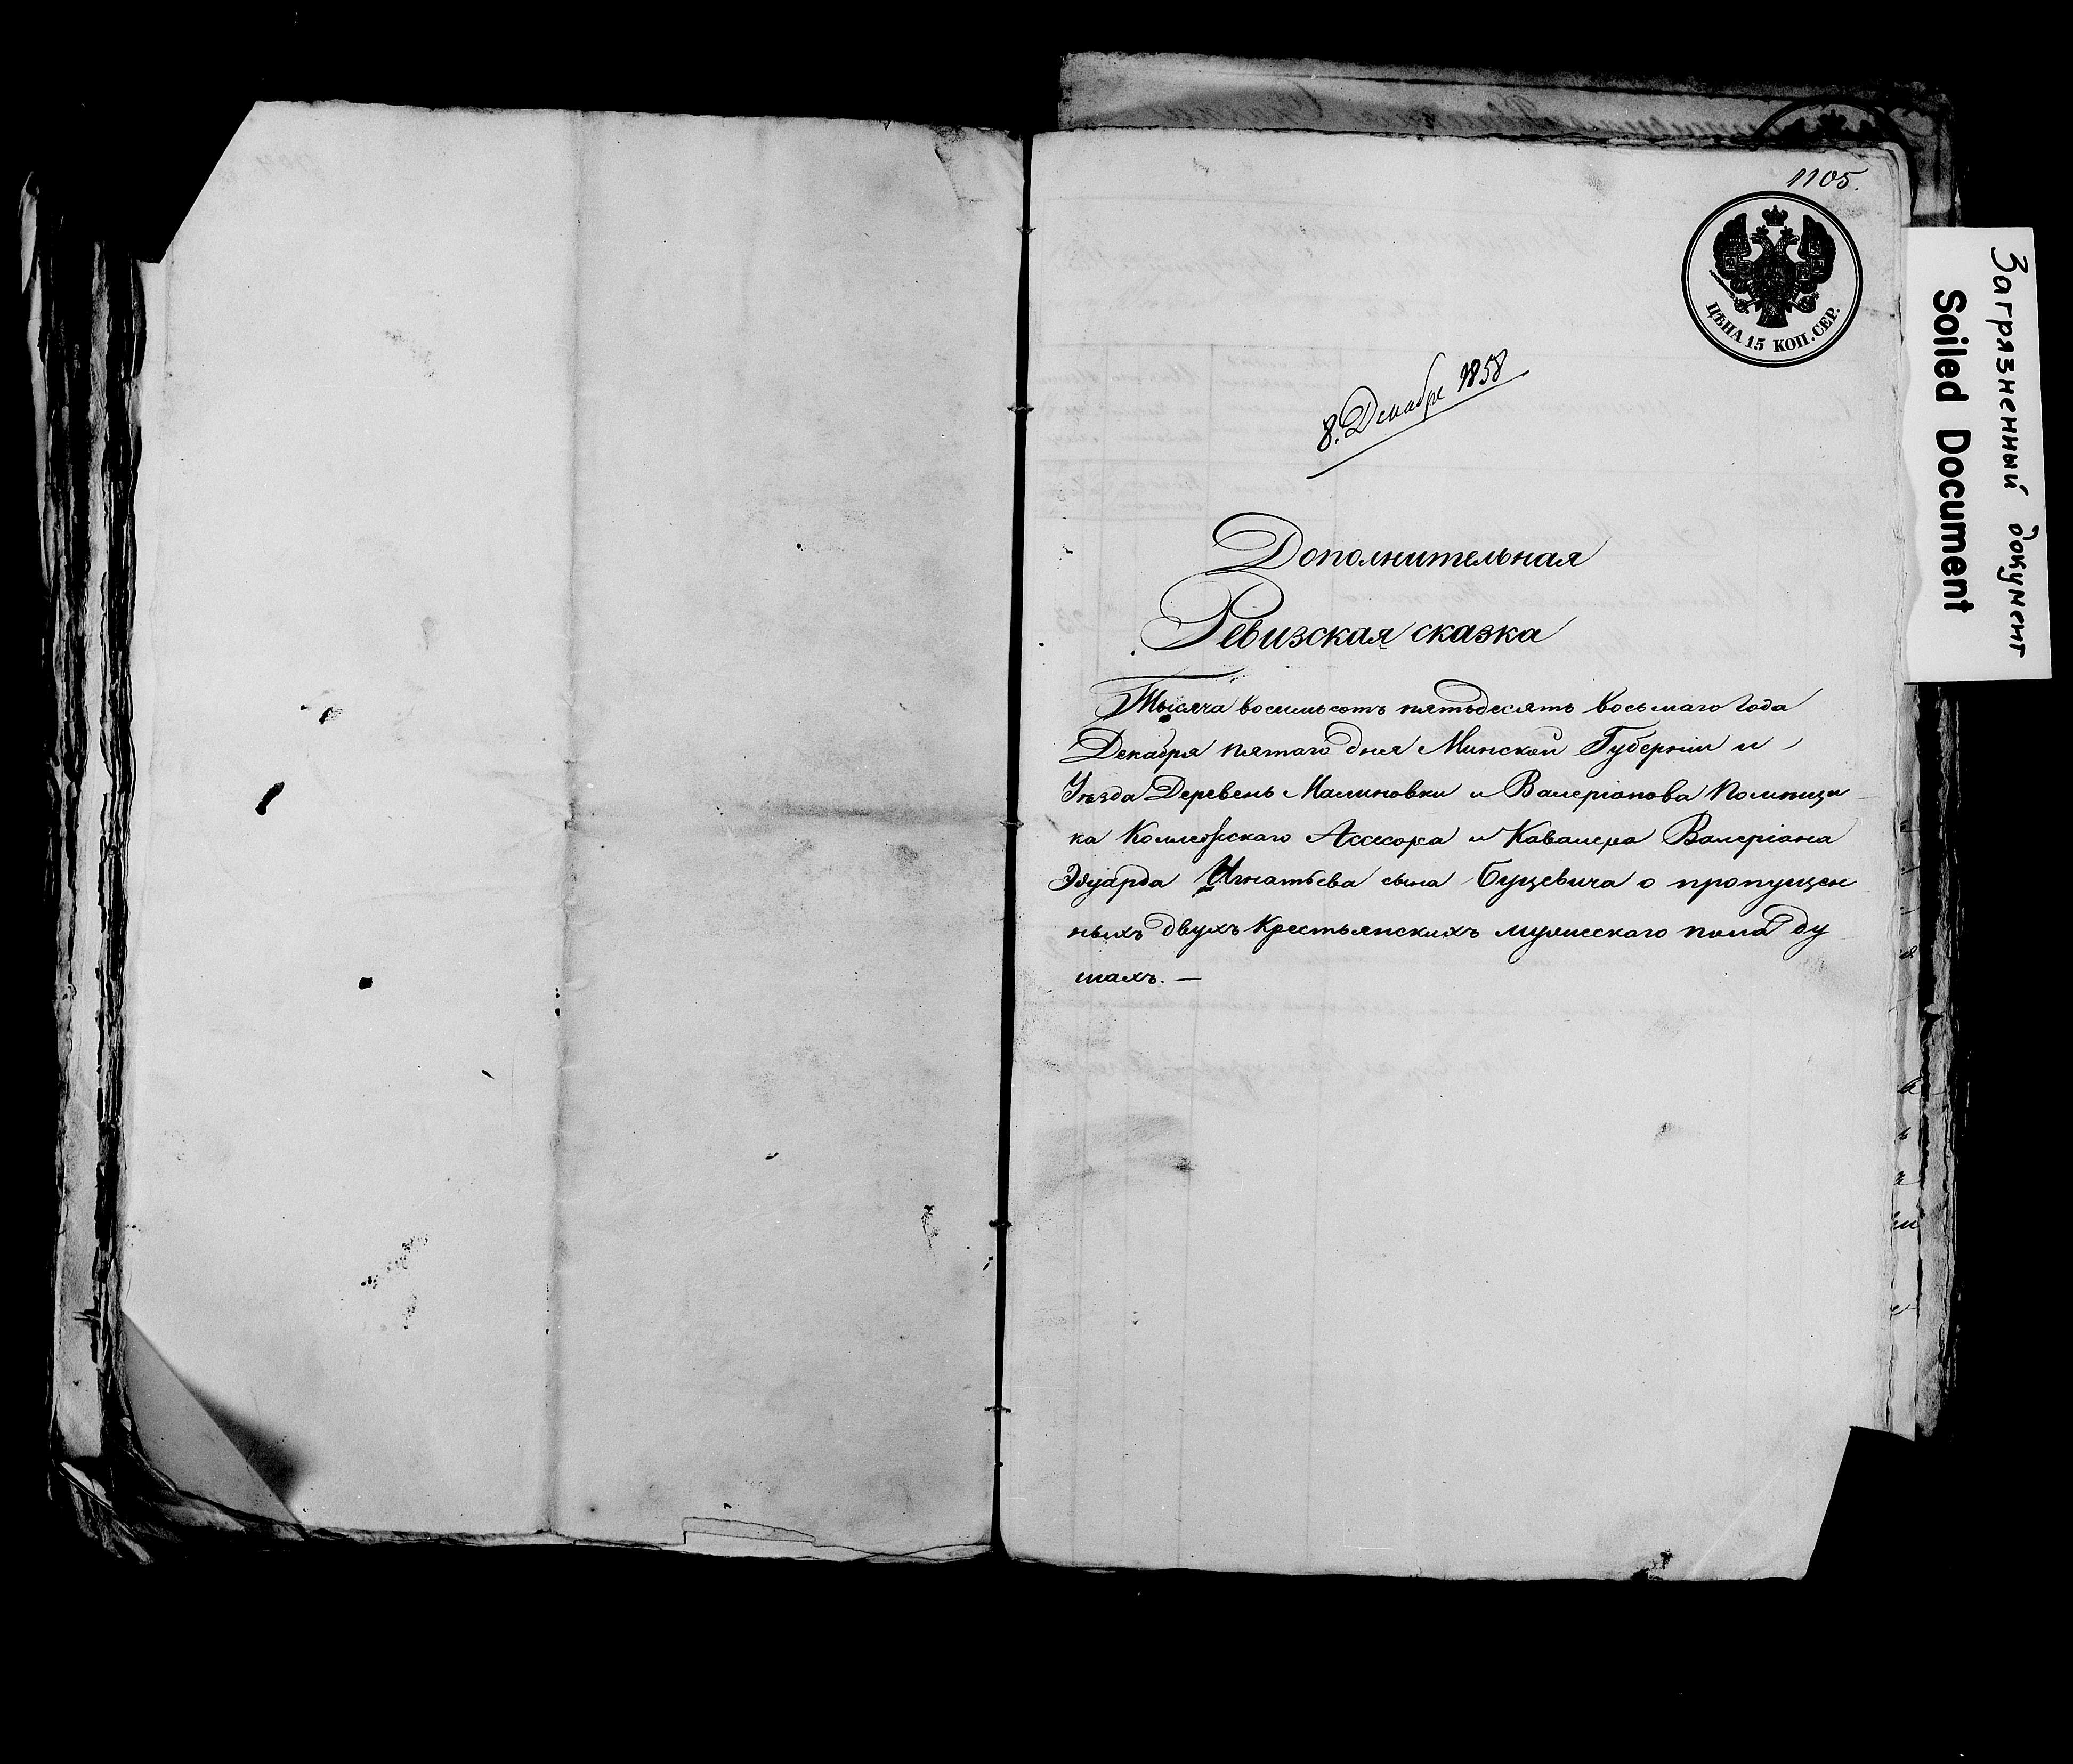 1105.
ЦѢНА 15 КОП. СЕР.
Загрязненный документ
Soiled Document
8. Декабря 1858
Дополнительная
Ревизская сказка
Тысяча восемьсотъ пятьдесятъ восьмаго года
Декабря пятаго дня Минской Губерніи и
Уѣзда Деревень Малиновки и Валеріанова Помѣщи
ка Коллежскаго Ассесора и Кавалера Валеріана
Эдуарда Игнатьева сына Буцевича о пропущен
ныхъ двухъ крестьянскихъ мужескаго пола ду
шахъ. —